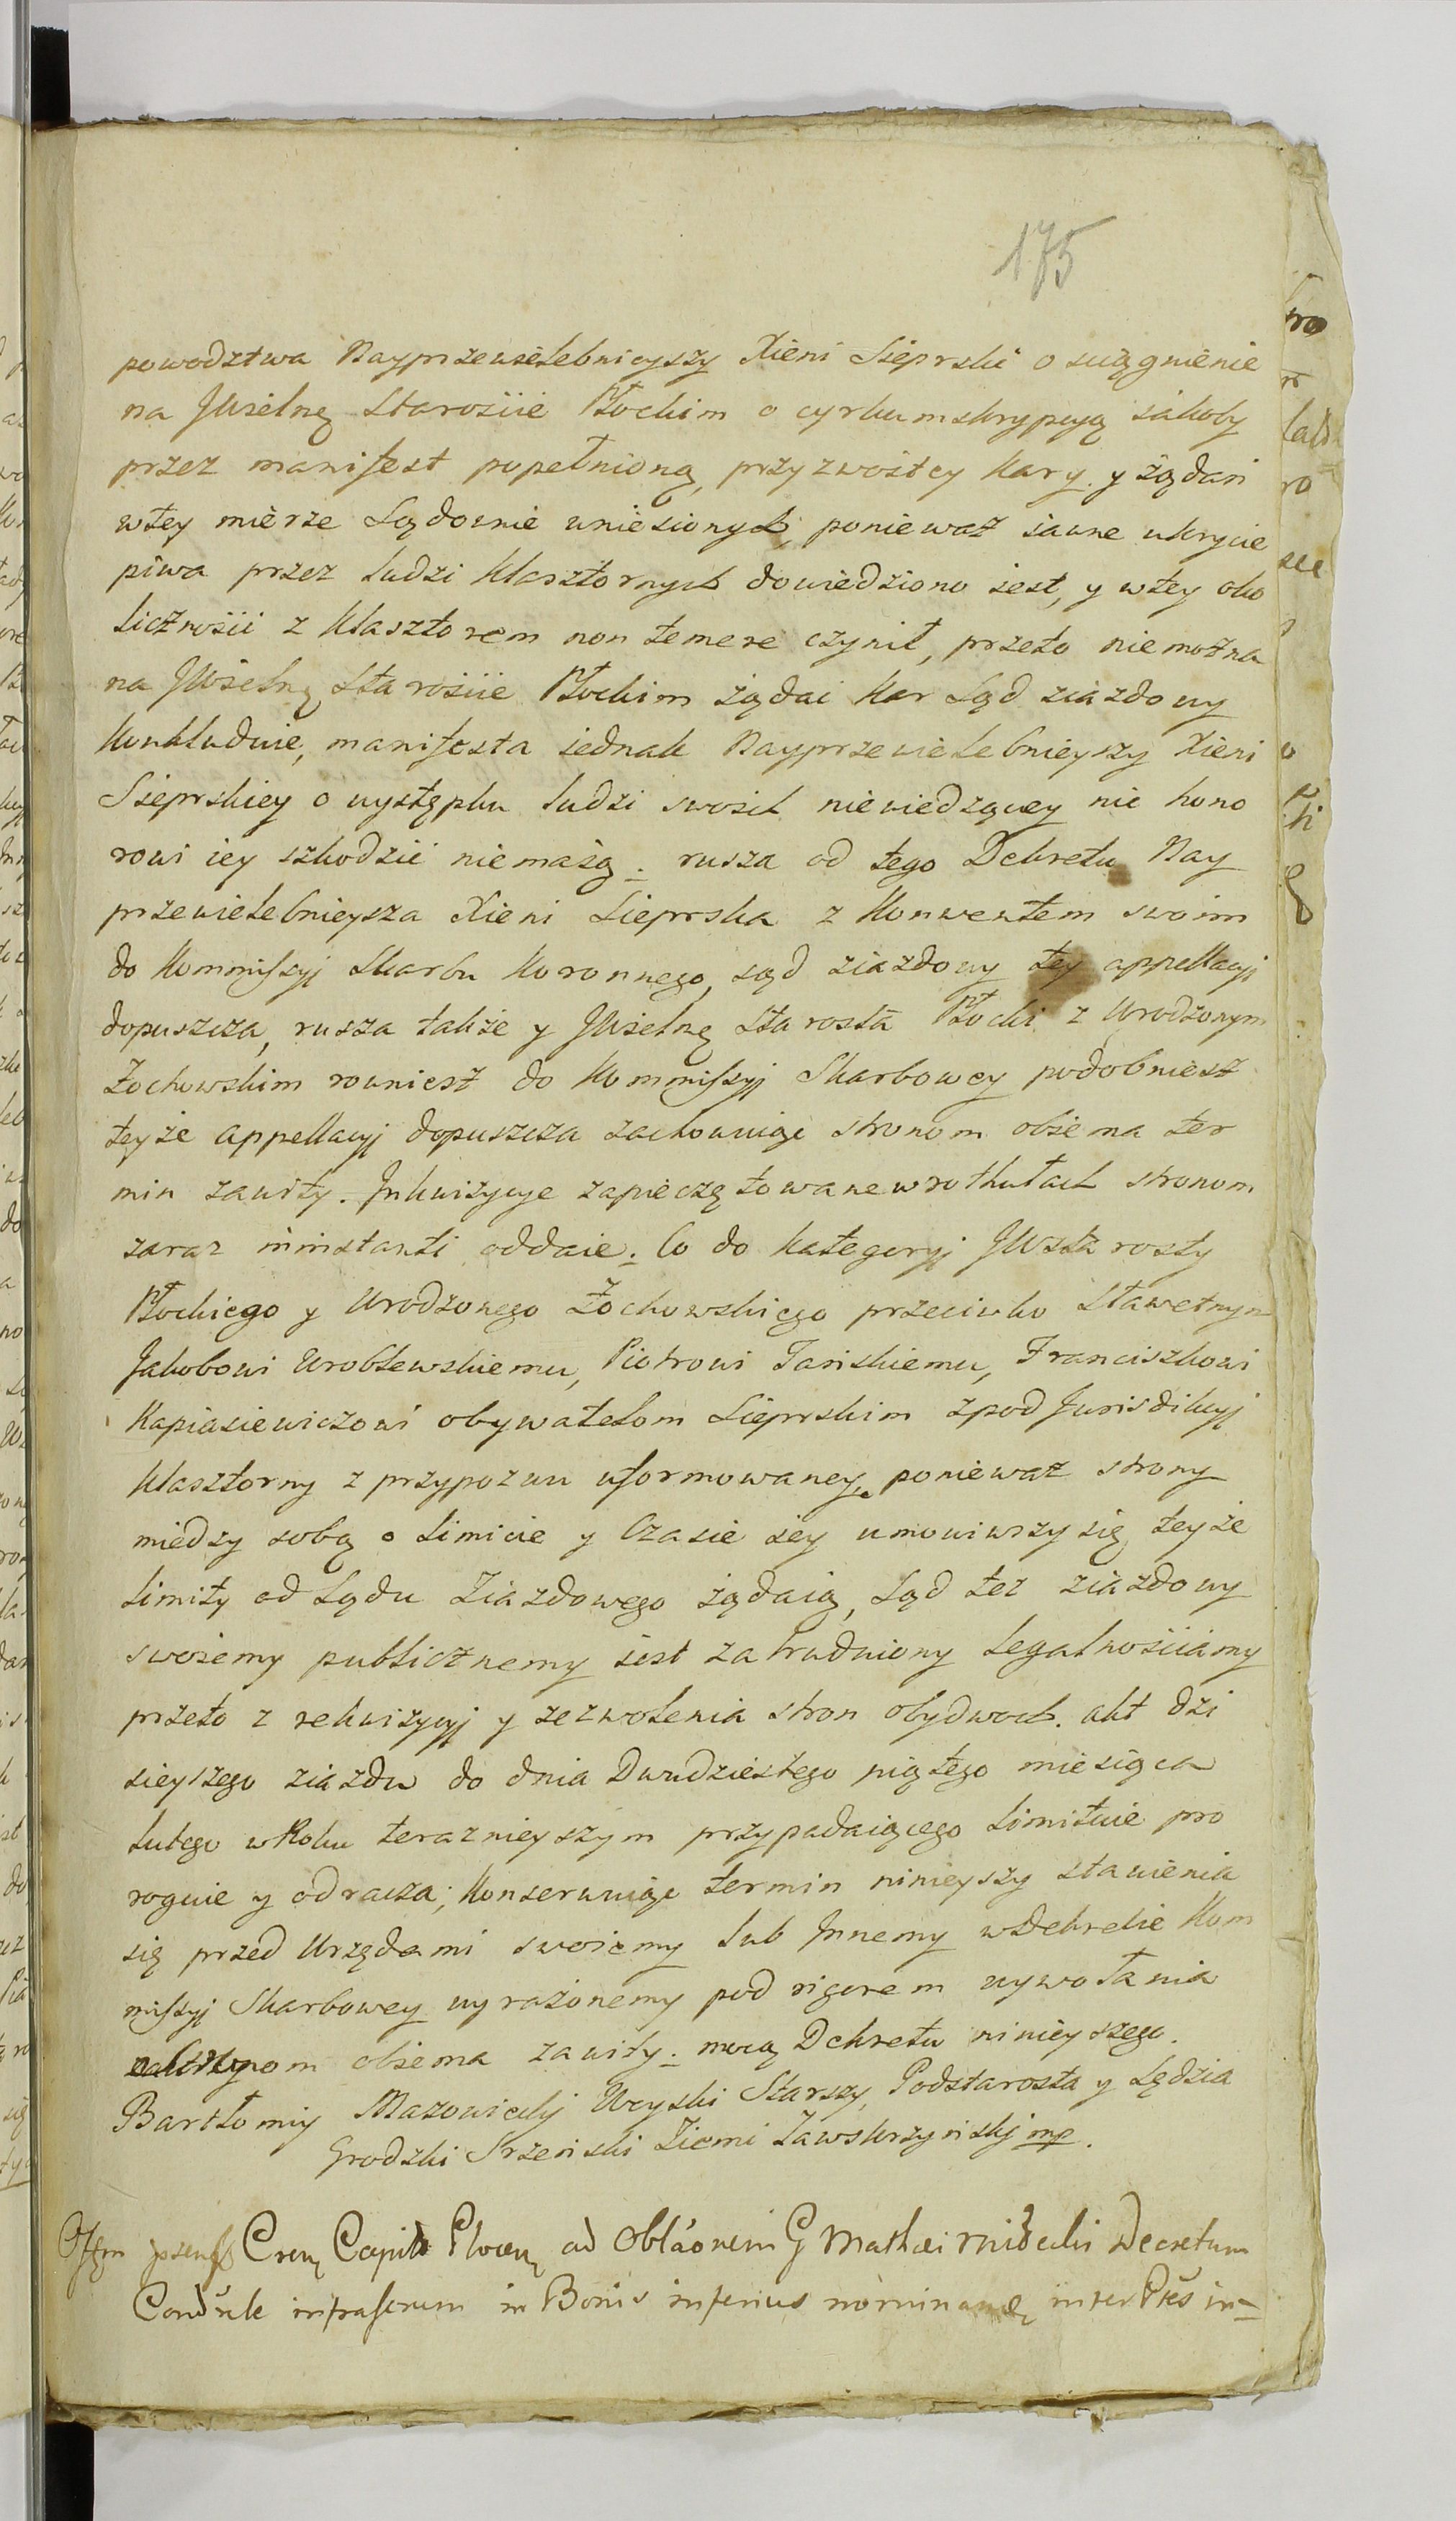 175
powodztwa Nayprzewielebnieyszy Xieni Sieprski o sciągnienie
na JWielnę Starosiie Płockim o cyrkumskrypcyą iakoby
przez manifest popełnioną, przyzwoitey Kary. y żądań
wtey mierze Sądownie uniesionych, ponieważ iawne ukrycie
piwa przez ludzi Klasztornych dowiedziono iest, y wtey oko
licznosii z Klasztorem non temere czynił, przeto niemożna
na JWielnę Starosiie Płockim żądai Kar Sąd ziazdowy
Konkluduie, manifesta iednak Nayprzewielebnieyszy Xieni
Sieprskiey o występku ludzi swoich niewiedzącey nic hono
rowi iey szkodzić niemaią. rusza od tego Dekretu Nay
przewielebnieysza Xieni Sieprska z Konwentem swoim
do Kommissyj Skarbu Koronnego, sąd ziazdowy tey appellacyj
dopuszcza, rusza także y JWielnę Starosta Płocki z Urodzonym
Żochowskim rowniesz do Kommissyj Skarbowey podobniesz
teyże appellacyj dopuszcza zachowuiąc stronom obiema ter
min zawity. Inkwizycye zapieczętowane w rotkułach stronom
zaraz ininstanti oddaie. Co do Kategoryj JWStarosty
Płockiego y Urodzonego Żochowskiego przeciwko Sławetnym
Jakobowi Wroblewskiemu, Piotrowi Tańskiemu, Franciszkowi
Kapiasiewiczowi obywatelom Sieprskim zpod Jurisdikcyj
Klasztorny z przypozwu uformowaney, ponieważ strony
miedzy sobą o limicie y Czasie iey umowiwszy się, teyże
limity od Sądu Ziazdowego żądaią, Sąd tez ziazdowy
swoiemy publicznemy iest zatrudniony legalnosiiamy
przeto z rekwizycyj y zezwolenia stron obydwoch. akt dzi
sieyszego ziazdu do dnia Dwudziestego piątego miesiąca
lutego wRoku terazniejszym przypadaiącego limituie pro
roguie y odracza; Konserwuiąc termin ninieyszy stawienia
się przed Urzędami swoiemy lub Innemy wDekrecie Kom
missyj Skarbowey wyrażonemy pod rigorem wywołania
stronom obiema zawity. mocą Dekretu ninieyszego.
Bartłomiy Mazowiecki Ucyski Starszy, Podstarosta y Sędzia
Grodzki Srzeński Ziemi Zawskrzyńskj mp.
Crem Capitle Plocen ad Oblaonem G Mathei Decretum
Condnle infrascrum in Bonis inferius nominandis inter Ptes in=